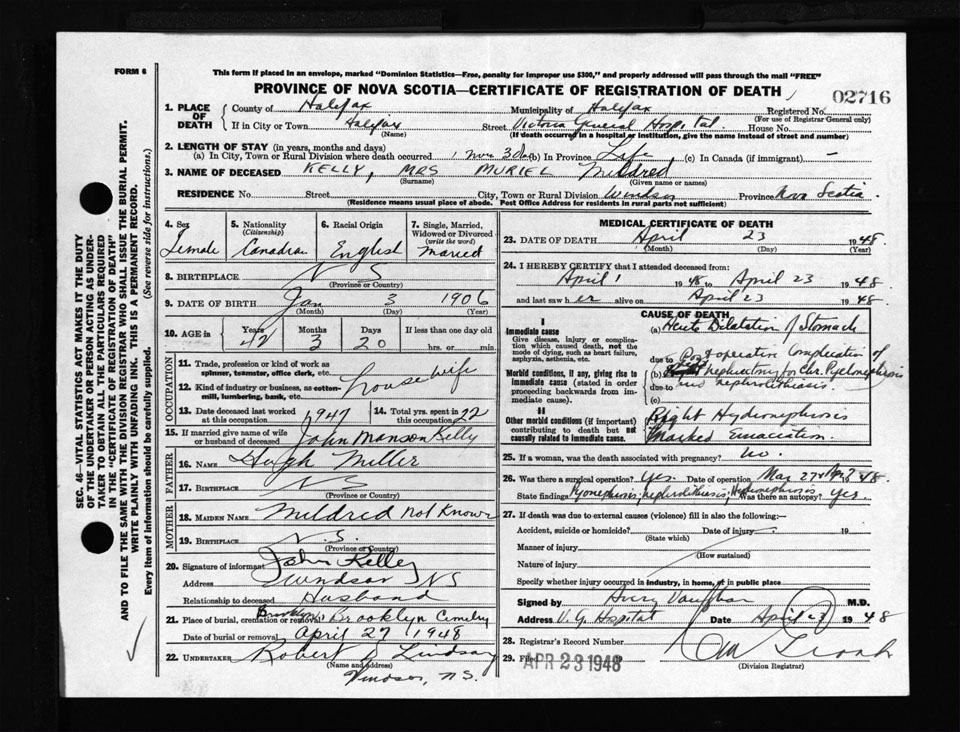 FORM 6
This form if placed in an envelope, marked "Dominion Statistics—Free, penalty for improper use $300," and properly addressed will pass through the mail "FREE"
PROVINCE OF NOVA SCOTIA—CERTIFICATE OF REGISTRATION OF DEATH
02716
SEC. 46—VITAL STATISTICS ACT MAKES IT THE DUTY
OF THE UNDERTAKER OR PERSON ACTING AS UNDER-
TAKER TO OBTAIN ALL THE PARTICULARS REQUIRED
IN THE "CERTIFICATE OF REGISTRATION OF DEATH"
AND TO FILE THE SAME WITH THE DIVISION REGISTRAR WHO SHALL ISSUE THE BURIAL PERMIT.
WRITE PLAINLY WITH UNFADING INK. THIS IS A PERMANENT RECORD.
Every item of information should be carefully supplied. (See reverse side for instructions.)
1. PLACE OF DEATH
County of Halifax Municipality of Halifax Registered No.
(For use of Registrar General only)
If in City or Town Halifax Street Victoria General Hospital House No.
(Name) (If death occurred in a hospital or institution, give name instead of street and number)
2. LENGTH OF STAY (in years, months and days)
(a) In City, Town or Rural Division where death occurred 1 Mo 3 Da (b) In Province Life (c) In Canada (if immigrant) —
3. NAME OF DECEASED KELLY, MRS MURIEL Mildred
(Surname) (Given name or names)
RESIDENCE No. Street City, Town or Rural Division Windsor Province Nova Scotia
(Residence means usual place of abode. Post Office Address for residents in rural parts not sufficient)
4. Sex Female
5. Nationality (Citizenship) Canadian
6. Racial Origin English
7. Single, Married, Widowed or Divorced (write the word) Married
8. BIRTHPLACE N S
(Province or Country)
9. DATE OF BIRTH Jan 3 1906
(Month) (Day) (Year)
10. AGE in Years Months Days If less than one day old
42 3 20 hrs. or min.
OCCUPATION
11. Trade, profession or kind of work as spinner, teamster, office clerk, etc.
12. Kind of industry or business, as cotton-mill, lumbering, bank, etc. housewife
13. Date deceased last worked at this occupation 1947
14. Total yrs. spent in this occupation 22
15. If married give name of wife or husband of deceased John Manson Kelly
FATHER
16. NAME Hugh Miller
17. BIRTHPLACE N S
(Province or Country)
MOTHER
18. MAIDEN NAME Mildred not Known
19. BIRTHPLACE N. S.
(Province or Country)
20. Signature of informant John Kelley
Address Windsor NS
Relationship to deceased Husband
21. Place of burial, cremation or removal Brooklyn Brooklyn Cemetery
Date of burial or removal April 27 1948
22. UNDERTAKER Robert D Lindsay
(Name and address)
Windsor, N.S.
MEDICAL CERTIFICATE OF DEATH
23. DATE OF DEATH April 23 1948
(Month) (Day) (Year)
24. I HEREBY CERTIFY that I attended deceased from:
April 1 1948 to April 23 1948
and last saw her alive on April 23 1948
CAUSE OF DEATH
I
Immediate cause
Give disease, injury or complication which caused death, not the mode of dying, such as heart failure, asphyxia, asthenia, etc.
(a) Acute Dilatation of Stomach
due to Post operative complication of
Morbid conditions, if any, giving rise to immediate cause (stated in order proceeding backwards from immediate cause).
(b) nephrectomy for Car. Pyelonephrosis
due to and nephrolithiasis.
(c)
II
Other morbid conditions (if important) contributing to death but not causally related to immediate cause.
Right Hydronephrosis
Marked Emaciation.
25. If a woman, was the death associated with pregnancy? no.
26. Was there a surgical operation? Yes. Date of operation Mar 27 & Apr 7 48
State findings Pyonephrosis; nephrolithiasis; Hydronephrosis Was there an autopsy? yes
27. If death was due to external causes (violence) fill in also the following:—
Accident, suicide or homicide? Date of injury 19
(State which)
Manner of injury
(How sustained)
Nature of injury
Specify whether injury occurred in industry, in home, or in public place
Signed by Avery Vaughan M.D.
Address V. G. Hospital Date April 23 1948
28. Registrar's Record Number
29. Filed APR 23 1948
(Division Registrar)